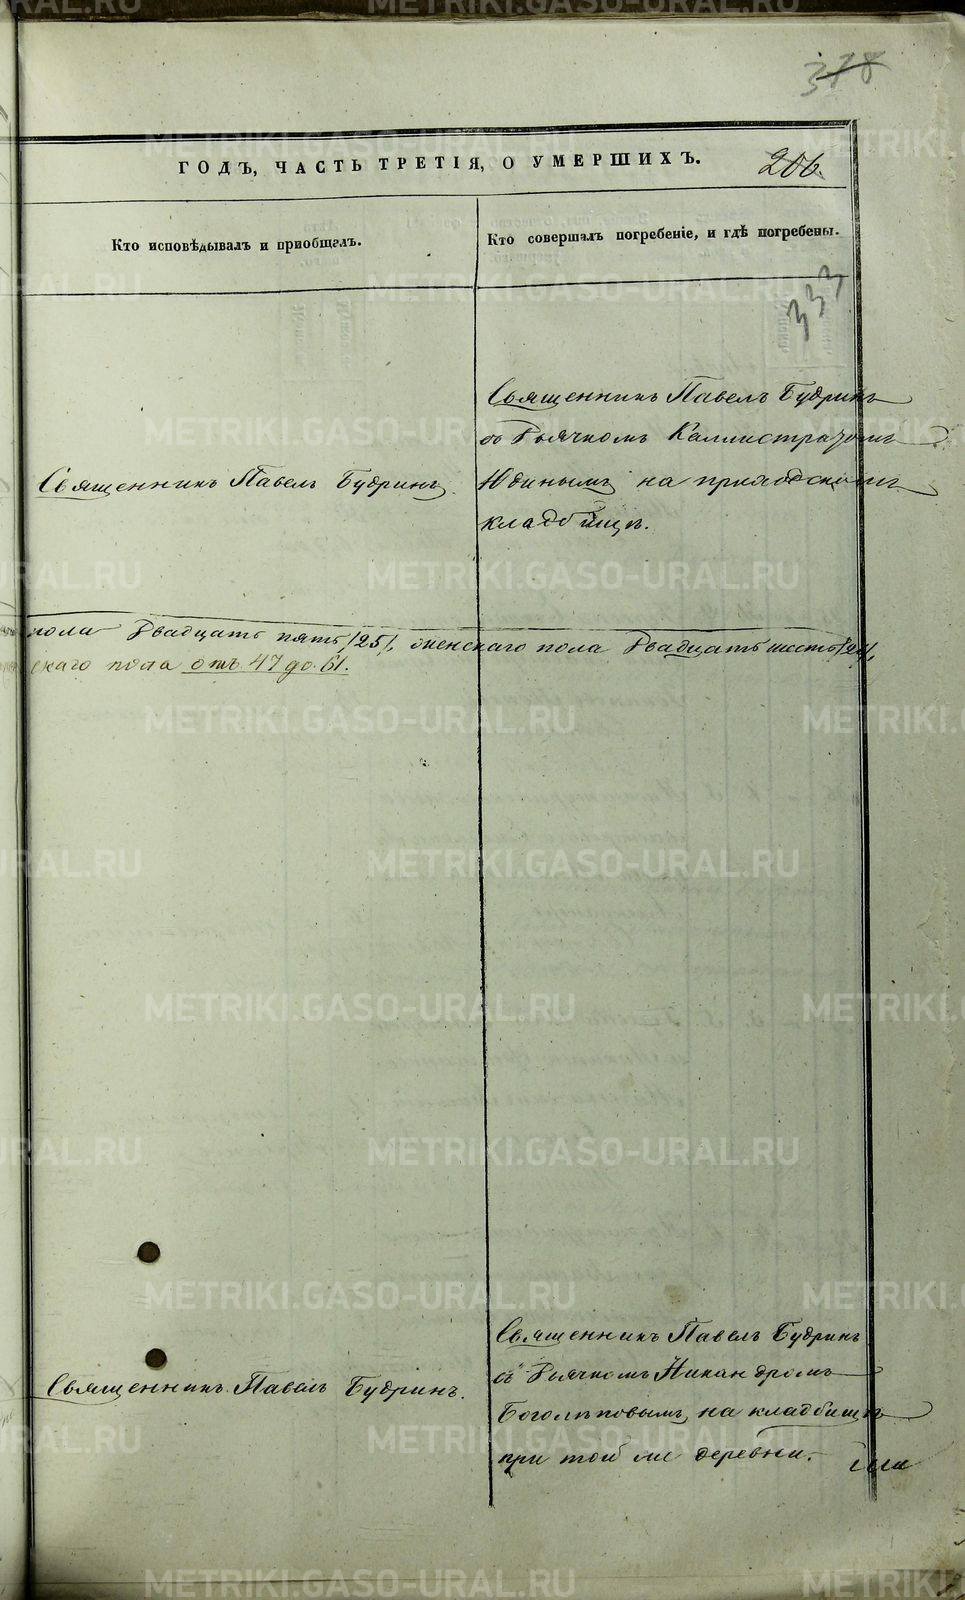 378
ГОДЪ, ЧАСТЬ ТРЕТІЯ, О УМЕРШИХЪ.
206.
Кто исповѣдывалъ и пріобщалъ.
Кто совершалъ погребеніе, и гдѣ погребены.
333
Священникъ Павелъ Будринъ
съ Дьячкомъ Каллистратомъ
Священникъ Павелъ Будринъ.
Юдинымъ на приходскомъ
кладбищѣ.
пола Двадцать пять /25/, женскаго пола Двадцать шесть /26/,
скаго пола отъ 47 до 61.
Священникъ Павелъ Будринъ
съ Дьячкомъ Никандромъ
Священникъ Павелъ Будринъ.
Боголѣповымъ, на кладбищѣ
при той же деревни.
METRIKI.GASO-URAL.RU